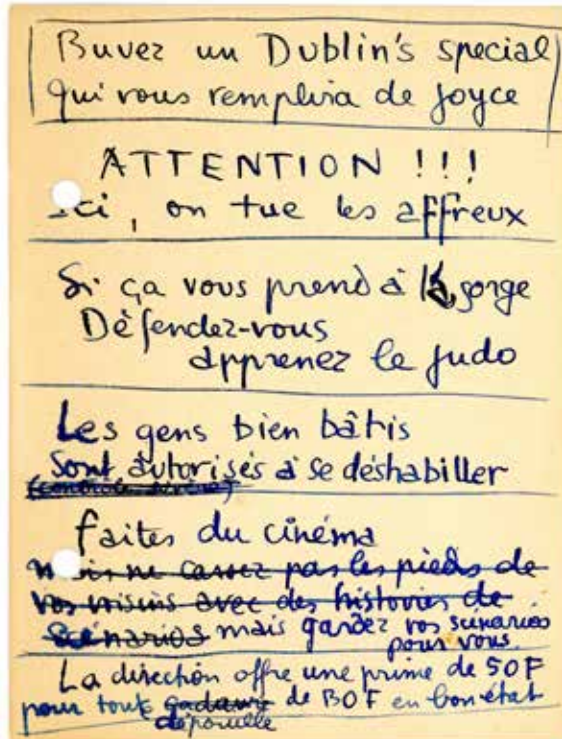 Buvez un Dublin's special
qui vous remplira de joyce
ATTENTION !!!
Ici, on tue les affreux
Si ça vous prend à la gorge
Défendez-vous
apprenez le judo
Les gens bien bâtis
sont autorisés à se déshabiller
faites du cinéma
mais ne cassez pas les pieds de
vos voisins avec des histoires de
scénarios mais gardez vos scénarios
pour vous
La direction offre une prime de 50F
pour toute cadavre de BOF en bon état
dépouille